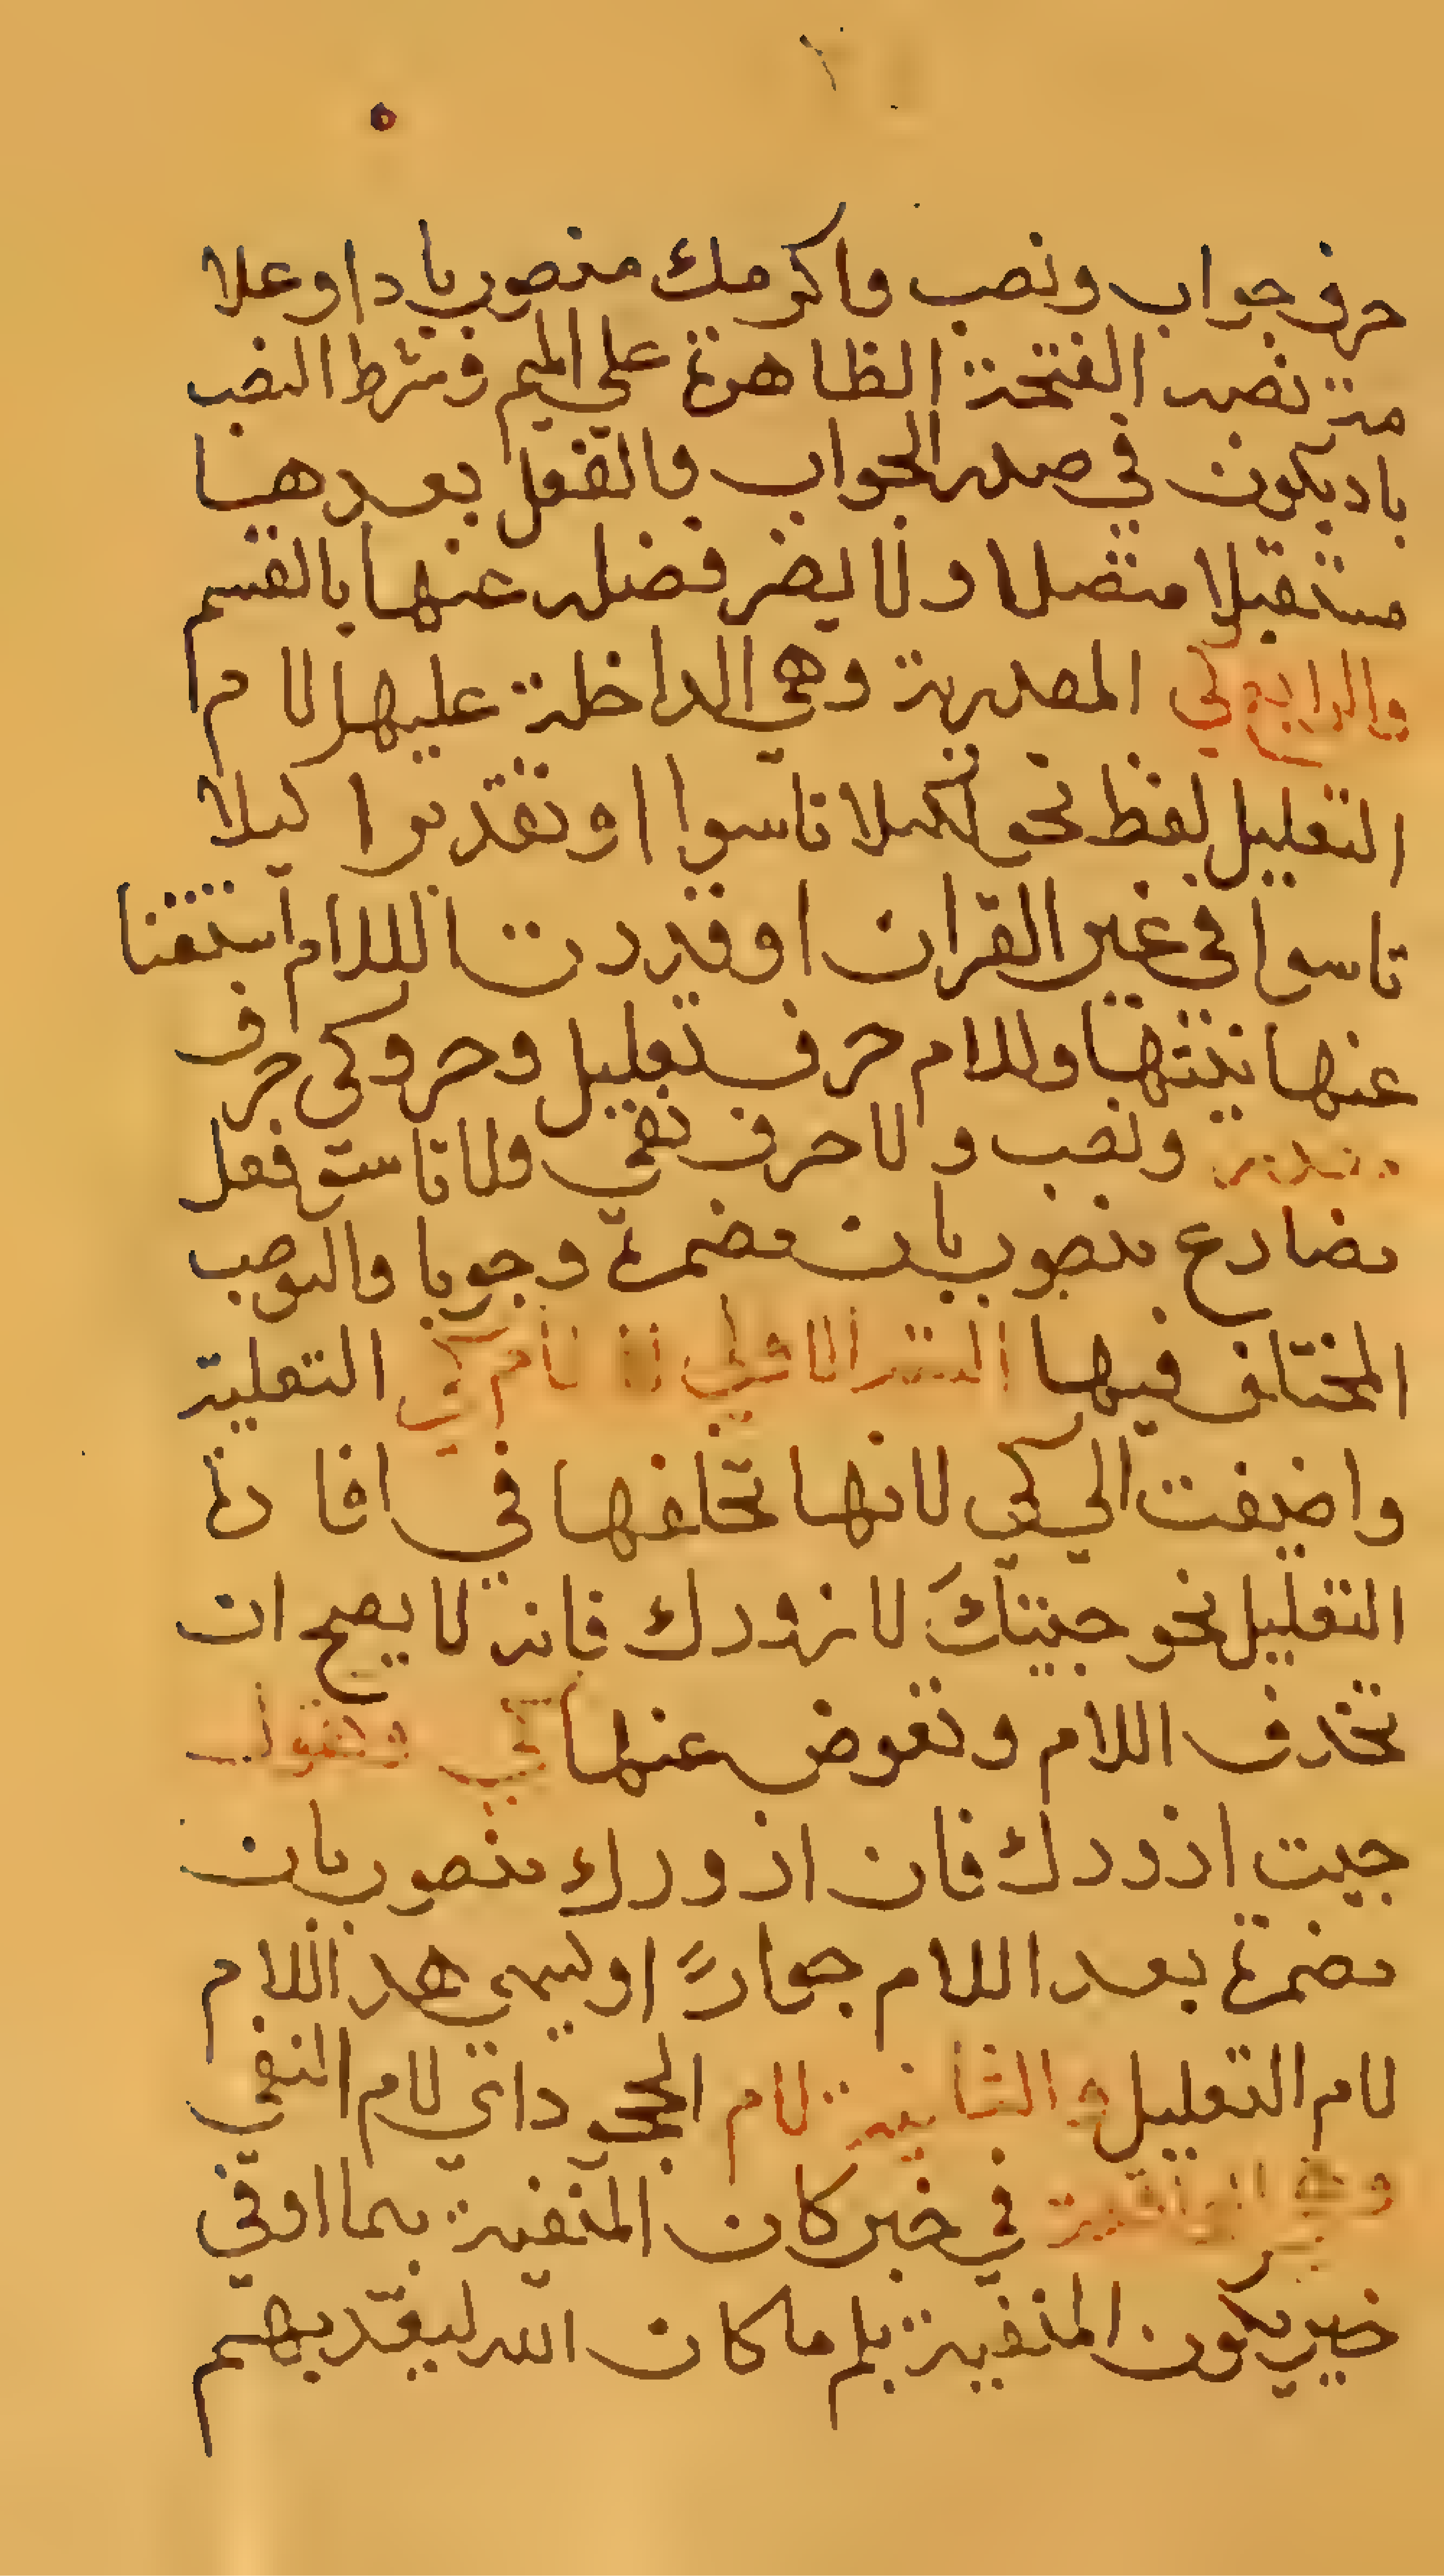 حرف جواب ونصب واكرمك منصوب باداوعلا
مة نصبه الفتحة الظاهرة علي الميم وشرط النصب
باد يكون في صدر الجواب والفعل بعدها
مستقبلا متصلا ولا يضر فصله عنها بالقسم
والرابع كي المصدرية وهي الداخلة عليها لام
التعليل لفظ نحو لكيلا تاسوا او تقديرا كيلا
تاسوا في غير القران اوقدرت اللام استغنا
عنها بنيتها وللام حرف تعليل وحر وكي حرف
ونصب ولا حرف نفي ولاتاسو فعل
مضارع منصوب بان مضمرة وجوبا والنوصب
المختلف فيها الاولي لام كي التعلية
واضيفت الي كي لانها تخلفها في افادة
التعليل نحو جيتك لا زودك فانه لا يصح ان
تخدف اللام وتعوض عنها كي وتقول
جيت ازورك فان ازورك منصوب بان
مضمرة بعد اللام جوازا اوليسمى هد اللام
لام التعليل والثانية لام الجحوداتي لام النفي
وهي الواقعة في خبر كان المنفية بما اوفي
خبر يكون المنفية بلم ما كان الله ليعد بهم